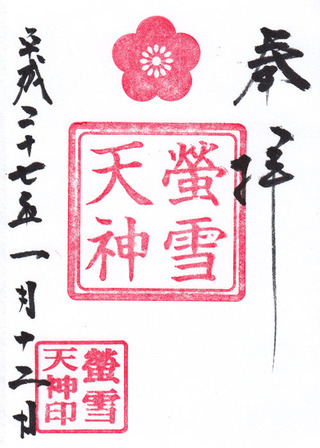 奉拝
螢雪
天神
平成二十七年一月十二日
螢雪
天神印